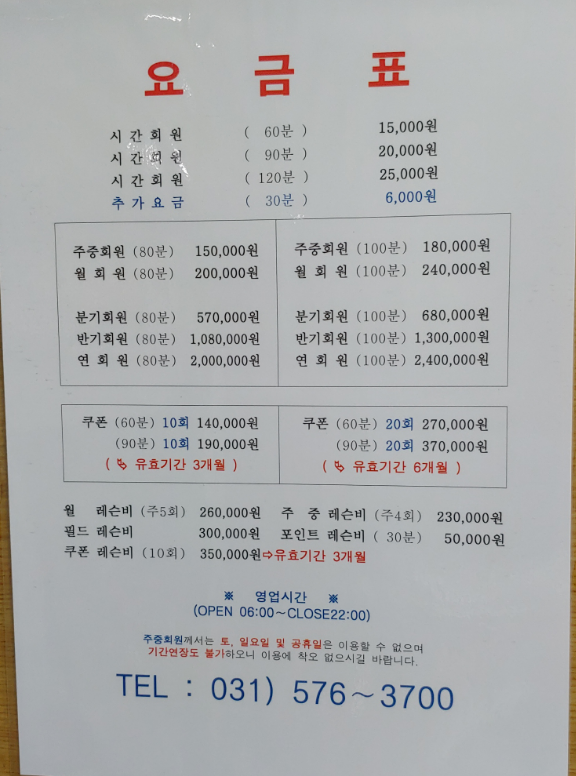 요 금 표
시 간 회 원 ( 60분 ) 15,000원
시 간 회 원 ( 90분 ) 20,000원
시 간 회 원 ( 120분 ) 25,000원
추 가 요 금 ( 30분 ) 6,000원
주중회원 (80분) 150,000원 주중회원 (100분) 180,000원
월 회 원 (80분) 200,000원 월 회 원 (100분) 240,000원
분기회원 (80분) 570,000원 분기회원 (100분) 680,000원
반기회원 (80분) 1,080,000원 반기회원 (100분) 1,300,000원
연 회 원 (80분) 2,000,000원 연 회 원 (100분) 2,400,000원
쿠폰 (60분) 10회 140,000원 쿠폰 (60분) 20회 270,000원
(90분) 10회 190,000원 (90분) 20회 370,000원
( ☙ 유효기간 3개월 ) ( ☙ 유효기간 6개월 )
월 레슨비 (주5회) 260,000원 주 중 레슨비 (주4회) 230,000원
필드 레슨비 300,000원 포인트 레슨비 ( 30분) 50,000원
쿠폰 레슨비 (10회) 350,000원⇨유효기간 3개월
※ 영업시간 ※
(OPEN 06:00~CLOSE22:00)
주중회원께서는 토, 일요일 및 공휴일은 이용할 수 없으며
기간연장도 불가하오니 이용에 착오 없으시길 바랍니다.
TEL : 031) 576~3700